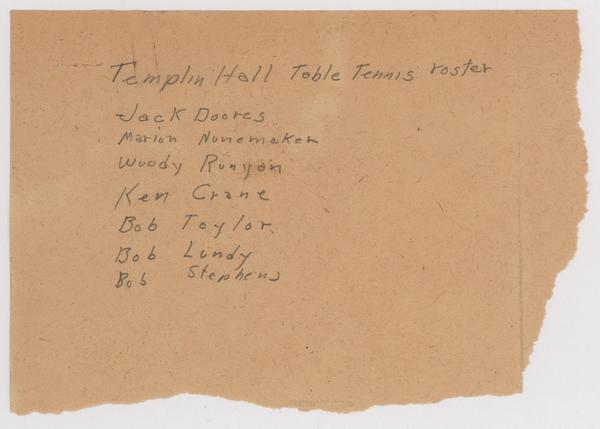 Templin Hall Table Tennis roster
Jack Doores
Marion Nunemaker
Woody Runyon
Ken Crane
Bob Taylor
Bob Lundy
Bob Stephens